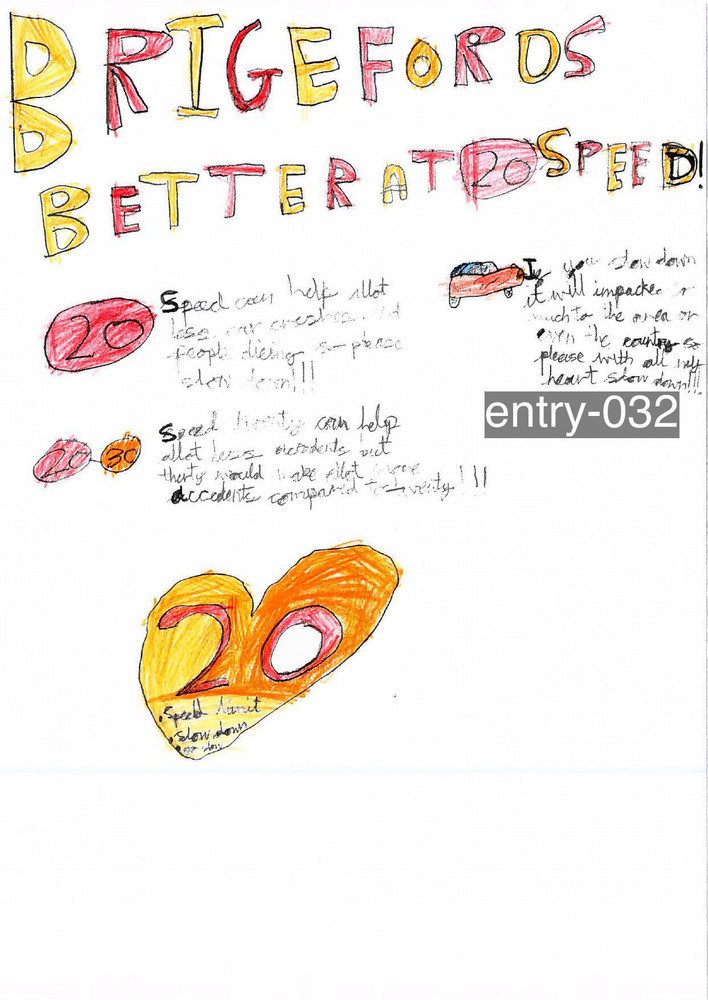 BRIGEFORDS
BETTER AT 20 SPEED!
20
Speed can help allot
less car crashes
people dieing so please
slow down!!!
If you slow down
it will impacked
much to the area or
even the country so
please with all my
heart slow down!!!
entry-032
20 30
Speed twenty can help
allot less accedents but
therty would make allot more
accedents compared to twenty!!!
20
speed limit
slow down
go slow